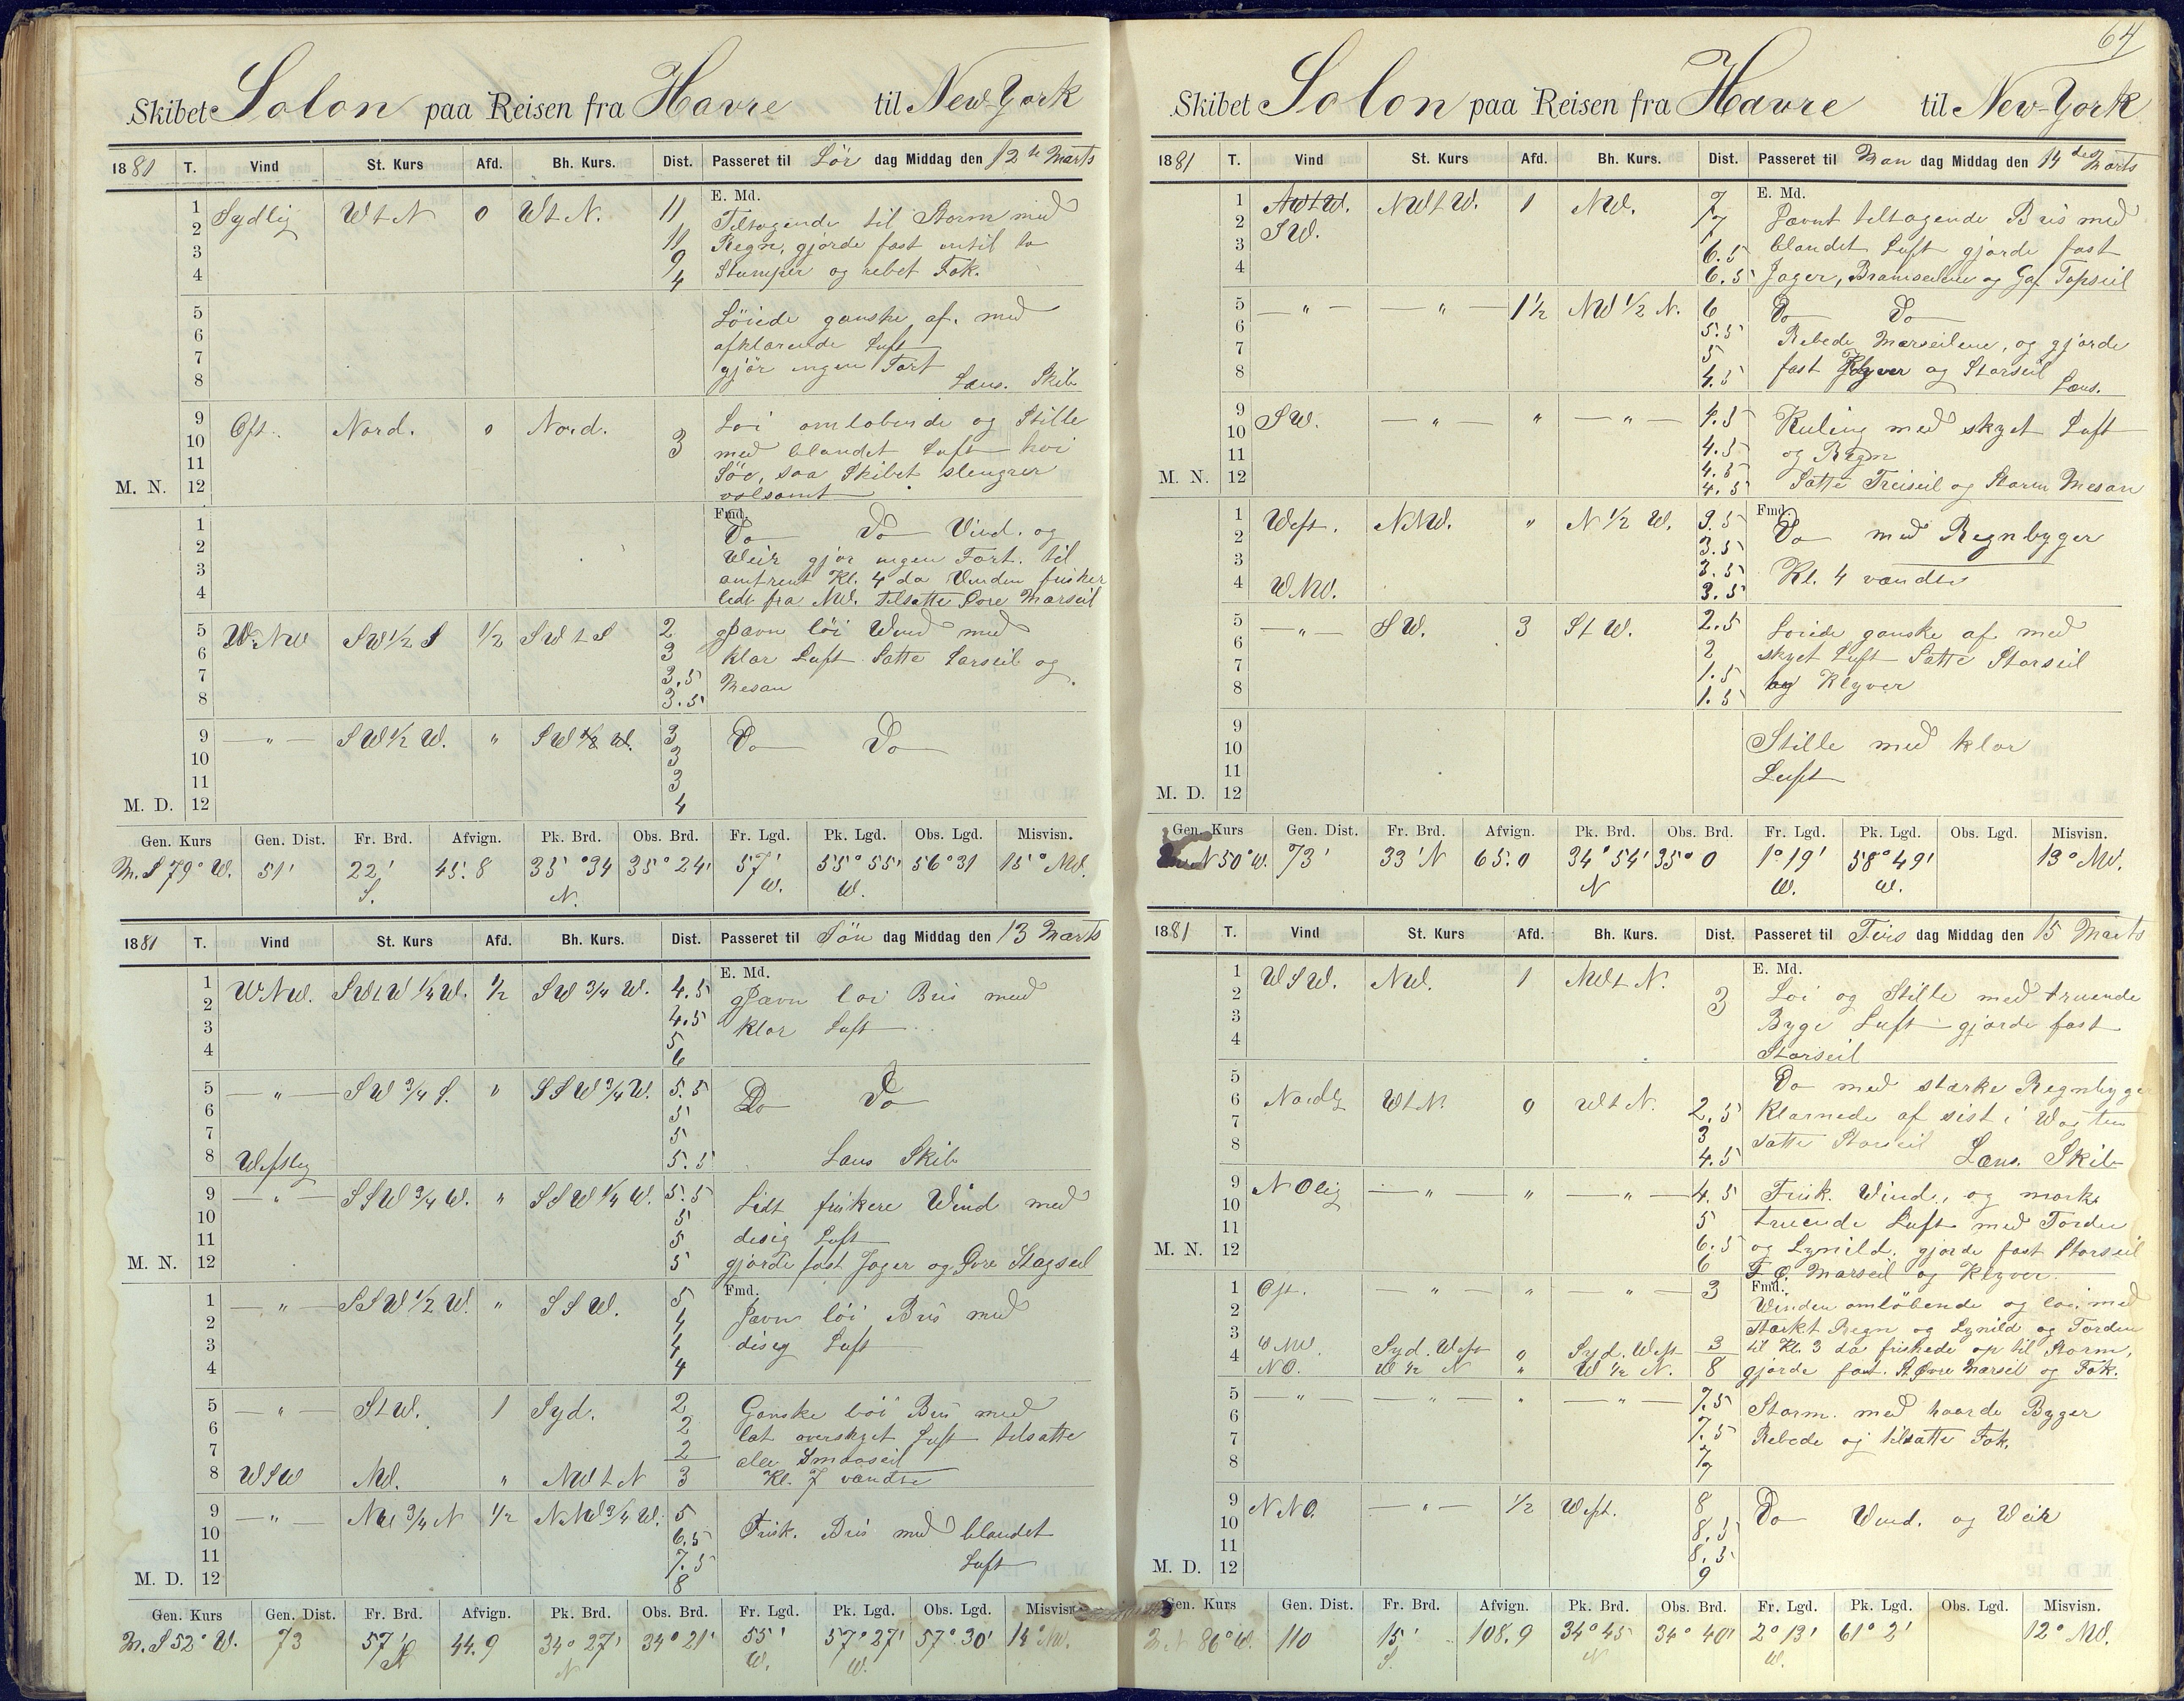 Skibet Solon paa Reisen fra Havre til New-York
1881 T. Vind St. Kurs Afd. Bh. Kurs. Dist. Passeret til Lør dag Middag den 12te Marts
E. Md.
1 Sydlig W t N 0 W t N. 11 Tiltagende til Storm med
2 11 Regn, gjorde fast intil to
3 9 Stumper og rebet Fok.
4 4
5 Løiede ganske af. med
6 afklarende Luft
7 gjör ingen Fart
8 Læns. Skib
9 Ost. Nord. 0 Nord. Löi omlobende og Stille
10 3 med blandet Luft hoi
11 Söe, saa Skibet slengrer
M. N. 12 volsomt
Fmd.
1 Do Do Vind. og
2 Weir gjör ingen Fart. til
3 omtrent Kl. 4 da Vinden frisker
4 lidt fra NW. Tilsatte Øvre Marseil
5 W. NW SW 1/2 S 1/2 SW t S 2 Jævn löi Wind med
6 3 klar Luft Satte Sarseil og
7 3.5 Mesan
8 3.5
9 — " — SW 1/2 W. " SW 1/2 W. 3 Do Do
10 3
11 3
M. D. 12 4
Gen. Kurs Gen. Dist. Fr. Brd. Afvign. Pk. Brd. Obs. Brd. Fr. Lgd. Pk. Lgd. Obs. Lgd. Misvisn.
M. S 79° W. 51' 22' 45.8 35°34 35°24' 57' 55°55' 56°31 15° NW.
S. N. W. W.
1881 T. Vind St. Kurs Afd. Bh. Kurs. Dist. Passeret til Søn dag Middag den 13 Marts
E. Md.
1 WNW. SW t W 1/4 W. 1/2 SW 3/4 W. 4.5 Jævn loi Bris med
2 4.5 klar Luft
3 5
4 6
5 — " — SW 3/4 S. " SSW 3/4 W. 5.5 Do Do
6 5
7 5
8 Westlig 5.5 Læns Skib
9 — " — SSW 3/4 W. " SSW 1/4 W. 5.5 Lidt friskere Wind med
10 5 disig Luft
11 5 gjorde fast Jager og Øvre Stagseil
M. N. 12 5
Fmd.
1 — " — SSW 1/2 W. " SSW. 5 Jævn löi Bris med
2 4 disig Luft
3 4
4 4
5 — " — S t W. 1 Syd. 2 Ganske löi Bris med
6 2 let overskyet Luft tilsatte
7 2 alle Smaaseil
8 WSW NW. " NW t N 3 Kl. 7 vændte
9 — " — NW 3/4 N 1/2 NNW 3/4 W. 5 Frisk. Bris med blandet
10 6.5 Luft
11 7.5
M. D. 12 8
Gen. Kurs Gen. Dist. Fr. Brd. Afvign. Pk. Brd. Obs. Brd. Fr. Lgd. Pk. Lgd. Obs. Lgd. Misvisn.
M. S 52° W. 73 57' 44.9 34°27' 34°21' 55' 57°27' 57°30' 14° NW.
N W. W.
64
Skibet Solon paa Reisen fra Havre til New-York
1881 T. Vind St. Kurs Afd. Bh. Kurs. Dist. Passeret til Man dag Middag den 14des Marts
E. Md.
1 NW t W. 1 NW. 7 Jævnt tiltagende Bris med
2 SW. 7 blandet Luft gjorde fast
3 6.5 Jager, Bramseilene og Gaf Topseil
4 6.5
5 — " — — " — 1 1/2 NW 1/2 N. 6 Do Do
6 5.5 Rebede Merseilene, og gjorde
7 5 fast Klyver og Storseil
8 4.5 Læns.
9 SW. — " — " — " — 4.5 Kuling med skyet Luft
10 4.5 og Regn
11 4.5 Satte Treiseil og Storm Mesan
M. N. 12 4.5
Fmd.
1 West. NNW. " N 1/2 W. 3.5 Do med Regnbyger
2 3.5
3 3.5 Kl. 4 vændte
4 WNW. 3.5
5 — " — SW. 3 S t W. 2.5 Loiede ganske af med
6 2 skyet Luft Satte Storseil
7 1.5 og Klyver
8 1.5
9 Stille med klar
10 Luft
11
M. D. 12
Gen. Kurs Gen. Dist. Fr. Brd. Afvign. Pk. Brd. Obs. Brd. Fr. Lgd. Pk. Lgd. Obs. Lgd. Misvisn.
N 50° W. 73' 33' N 65.0 34°54' 35°0 1°19' 58°49' 13° NW.
N W. W.
1881 T. Vind St. Kurs Afd. Bh. Kurs. Dist. Passeret til Tirs dag Middag den 15 Marts
E. Md.
1 WSW. NW. 1 NW t N. Loi og Stille med truende
2 3 Byge Luft gjorde fast
3 Storseil
4
5 Do med stærke Regnbyge
6 Nordlg W t N. 0 W t N. 2.5 Klarnede af sist i Wagten
7 3 satte Storseil
8 4.5 Læns. Skib
9 NOlig — " — " — " — 4.5 Frisk. Wind, og mørk
10 5 truende Luft med Torden
11 6.5 og Lynild. gjorde fast Storseil
M. N. 12 6 Marseil og Klyver.
Fmd.
1 Ost. — " — " — " — 3 Winden omlöbende og loi. med
2 Stærkt Regn og Lynild og Torden
3 WNW. Syd. West 0 Syd. West 3 til Kl. 3 da friskede op til Storm,
4 NO. W 1/2 N " W 1/2 N. 8 gjorde fast. St. Øvre Marseil og Fok.
5 — " — — " — " — " — 7.5 Storm. med haarde Byger
6 7.5 Rebede og tilsatte Fok.
7 7
8 7
9 NNO. — " — 1/2 West. 8 Do Wind. og Weir
10 8.5
11 8.5
M. D. 12 9
Gen. Kurs Gen. Dist. Fr. Brd. Afvign. Pk. Brd. Obs. Brd. Fr. Lgd. Pk. Lgd. Obs. Lgd. Misvisn.
86° W. 110 15' 108.9 34°45 34°40' 2°13' 61°2' 12° NW.
S. N W.